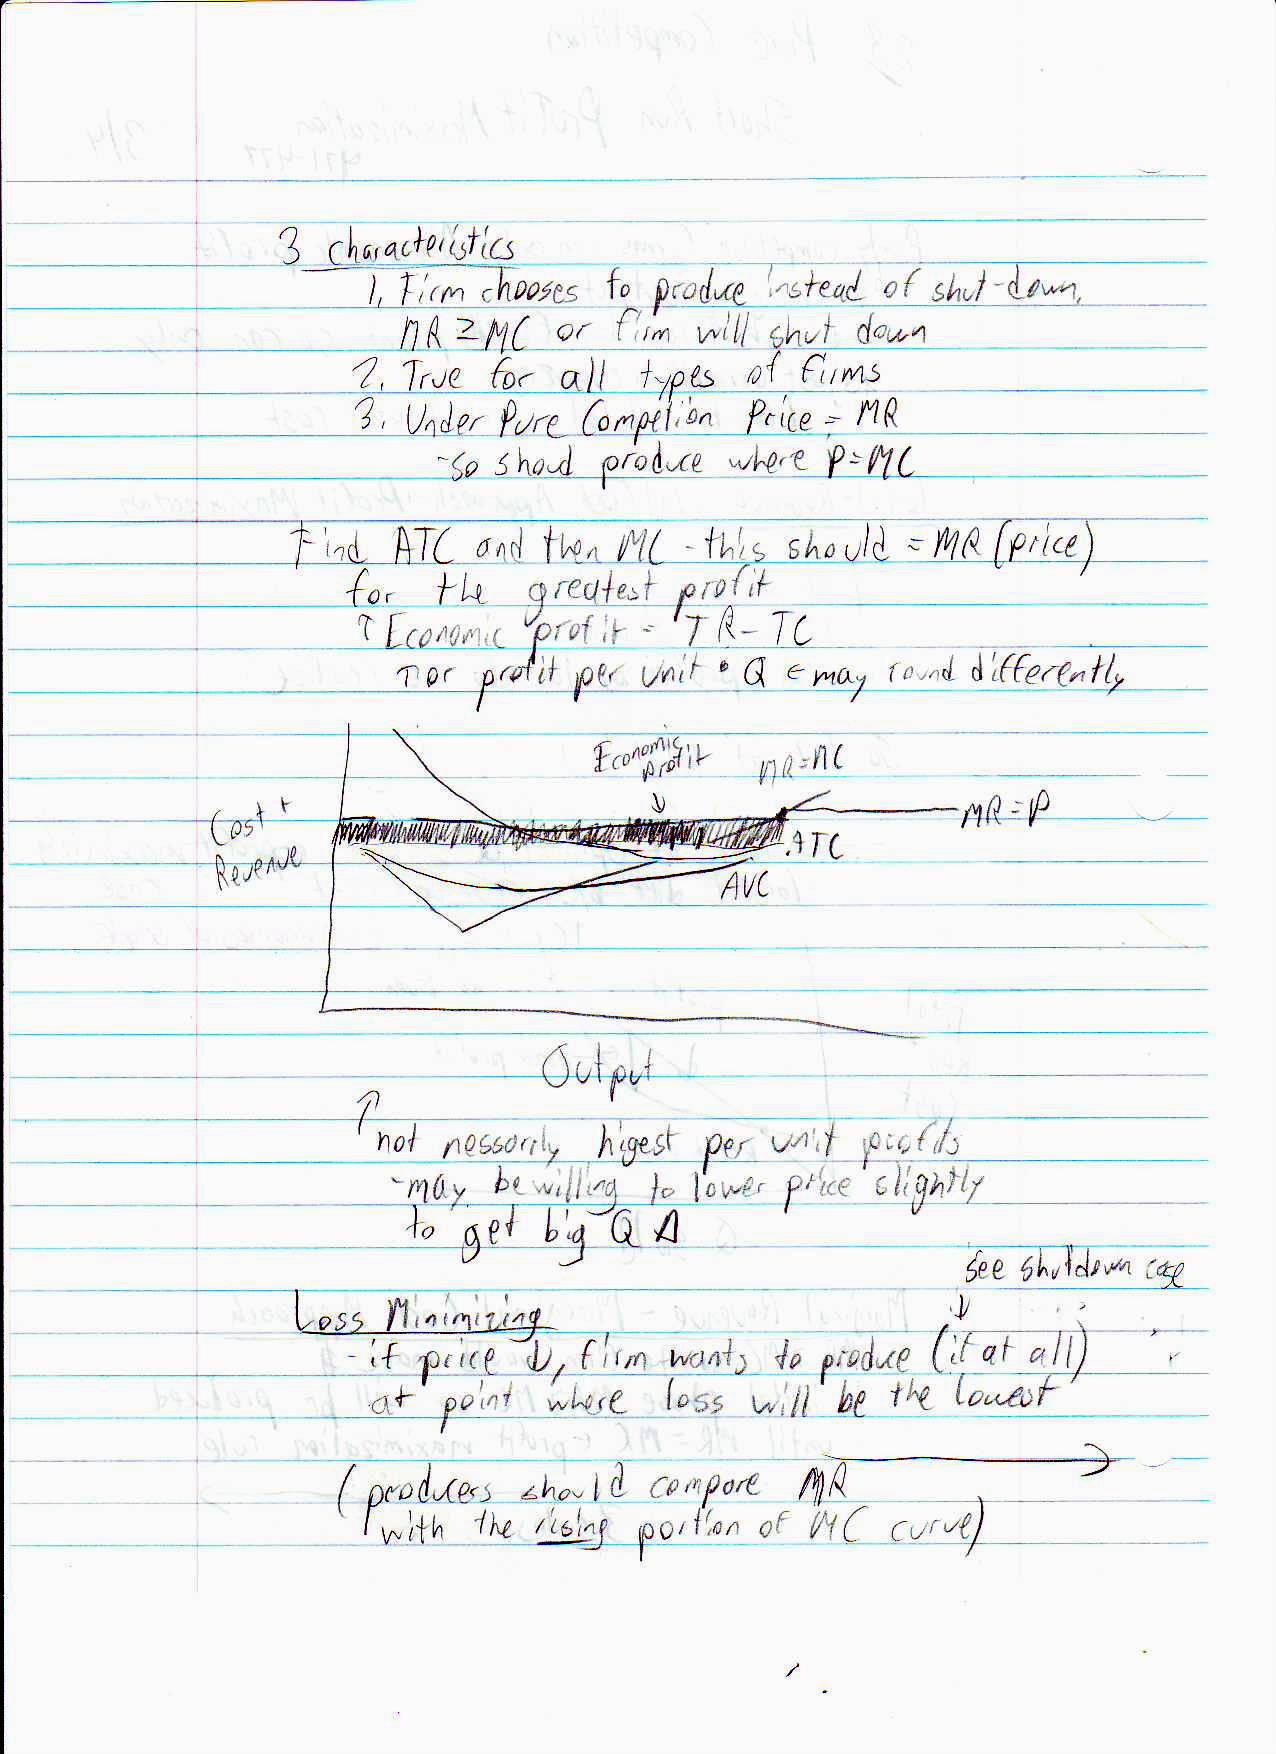 3 characteristics
1. Firm chooses to produce instead of shut-down.
MR ≥ MC or firm will shut down
2. True for all types of firms
3. Under Pure Competion Price = MR
-so shoud produce where P=MC
Find ATC and then MC - this should = MR (price)
for the greatest profit
↑ Economic profit = TR - TC
↑ or profit per unit • Q ← may round differently
Economic
profit
↓
MR=MC
Cost +
Revenue
MR=P
ATC
AVC
Output
↑
not nessorrly higest per unit profits
-may be willing to lower price slightly
to get big Q Δ
see shutdown case
↓
Loss Minimizing
- if price ↓, firm wants to produce (if at all)
at point where loss will be the lowest
(producers should compare MR
with the rising portion of MC curve)